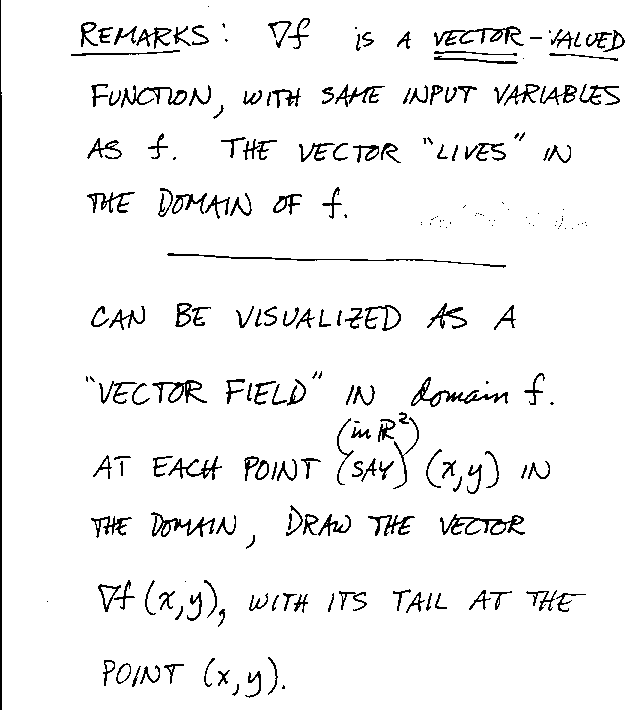 REMARKS: ∇f IS A VECTOR-VALUED
FUNCTION, WITH SAME INPUT VARIABLES
AS f. THE VECTOR "LIVES" IN
THE DOMAIN OF f.
CAN BE VISUALIZED AS A
"VECTOR FIELD" IN domain f.
(in ℝ²)
AT EACH POINT (SAY) (x,y) IN
THE DOMAIN, DRAW THE VECTOR
∇f(x,y), WITH ITS TAIL AT THE
POINT (x,y).